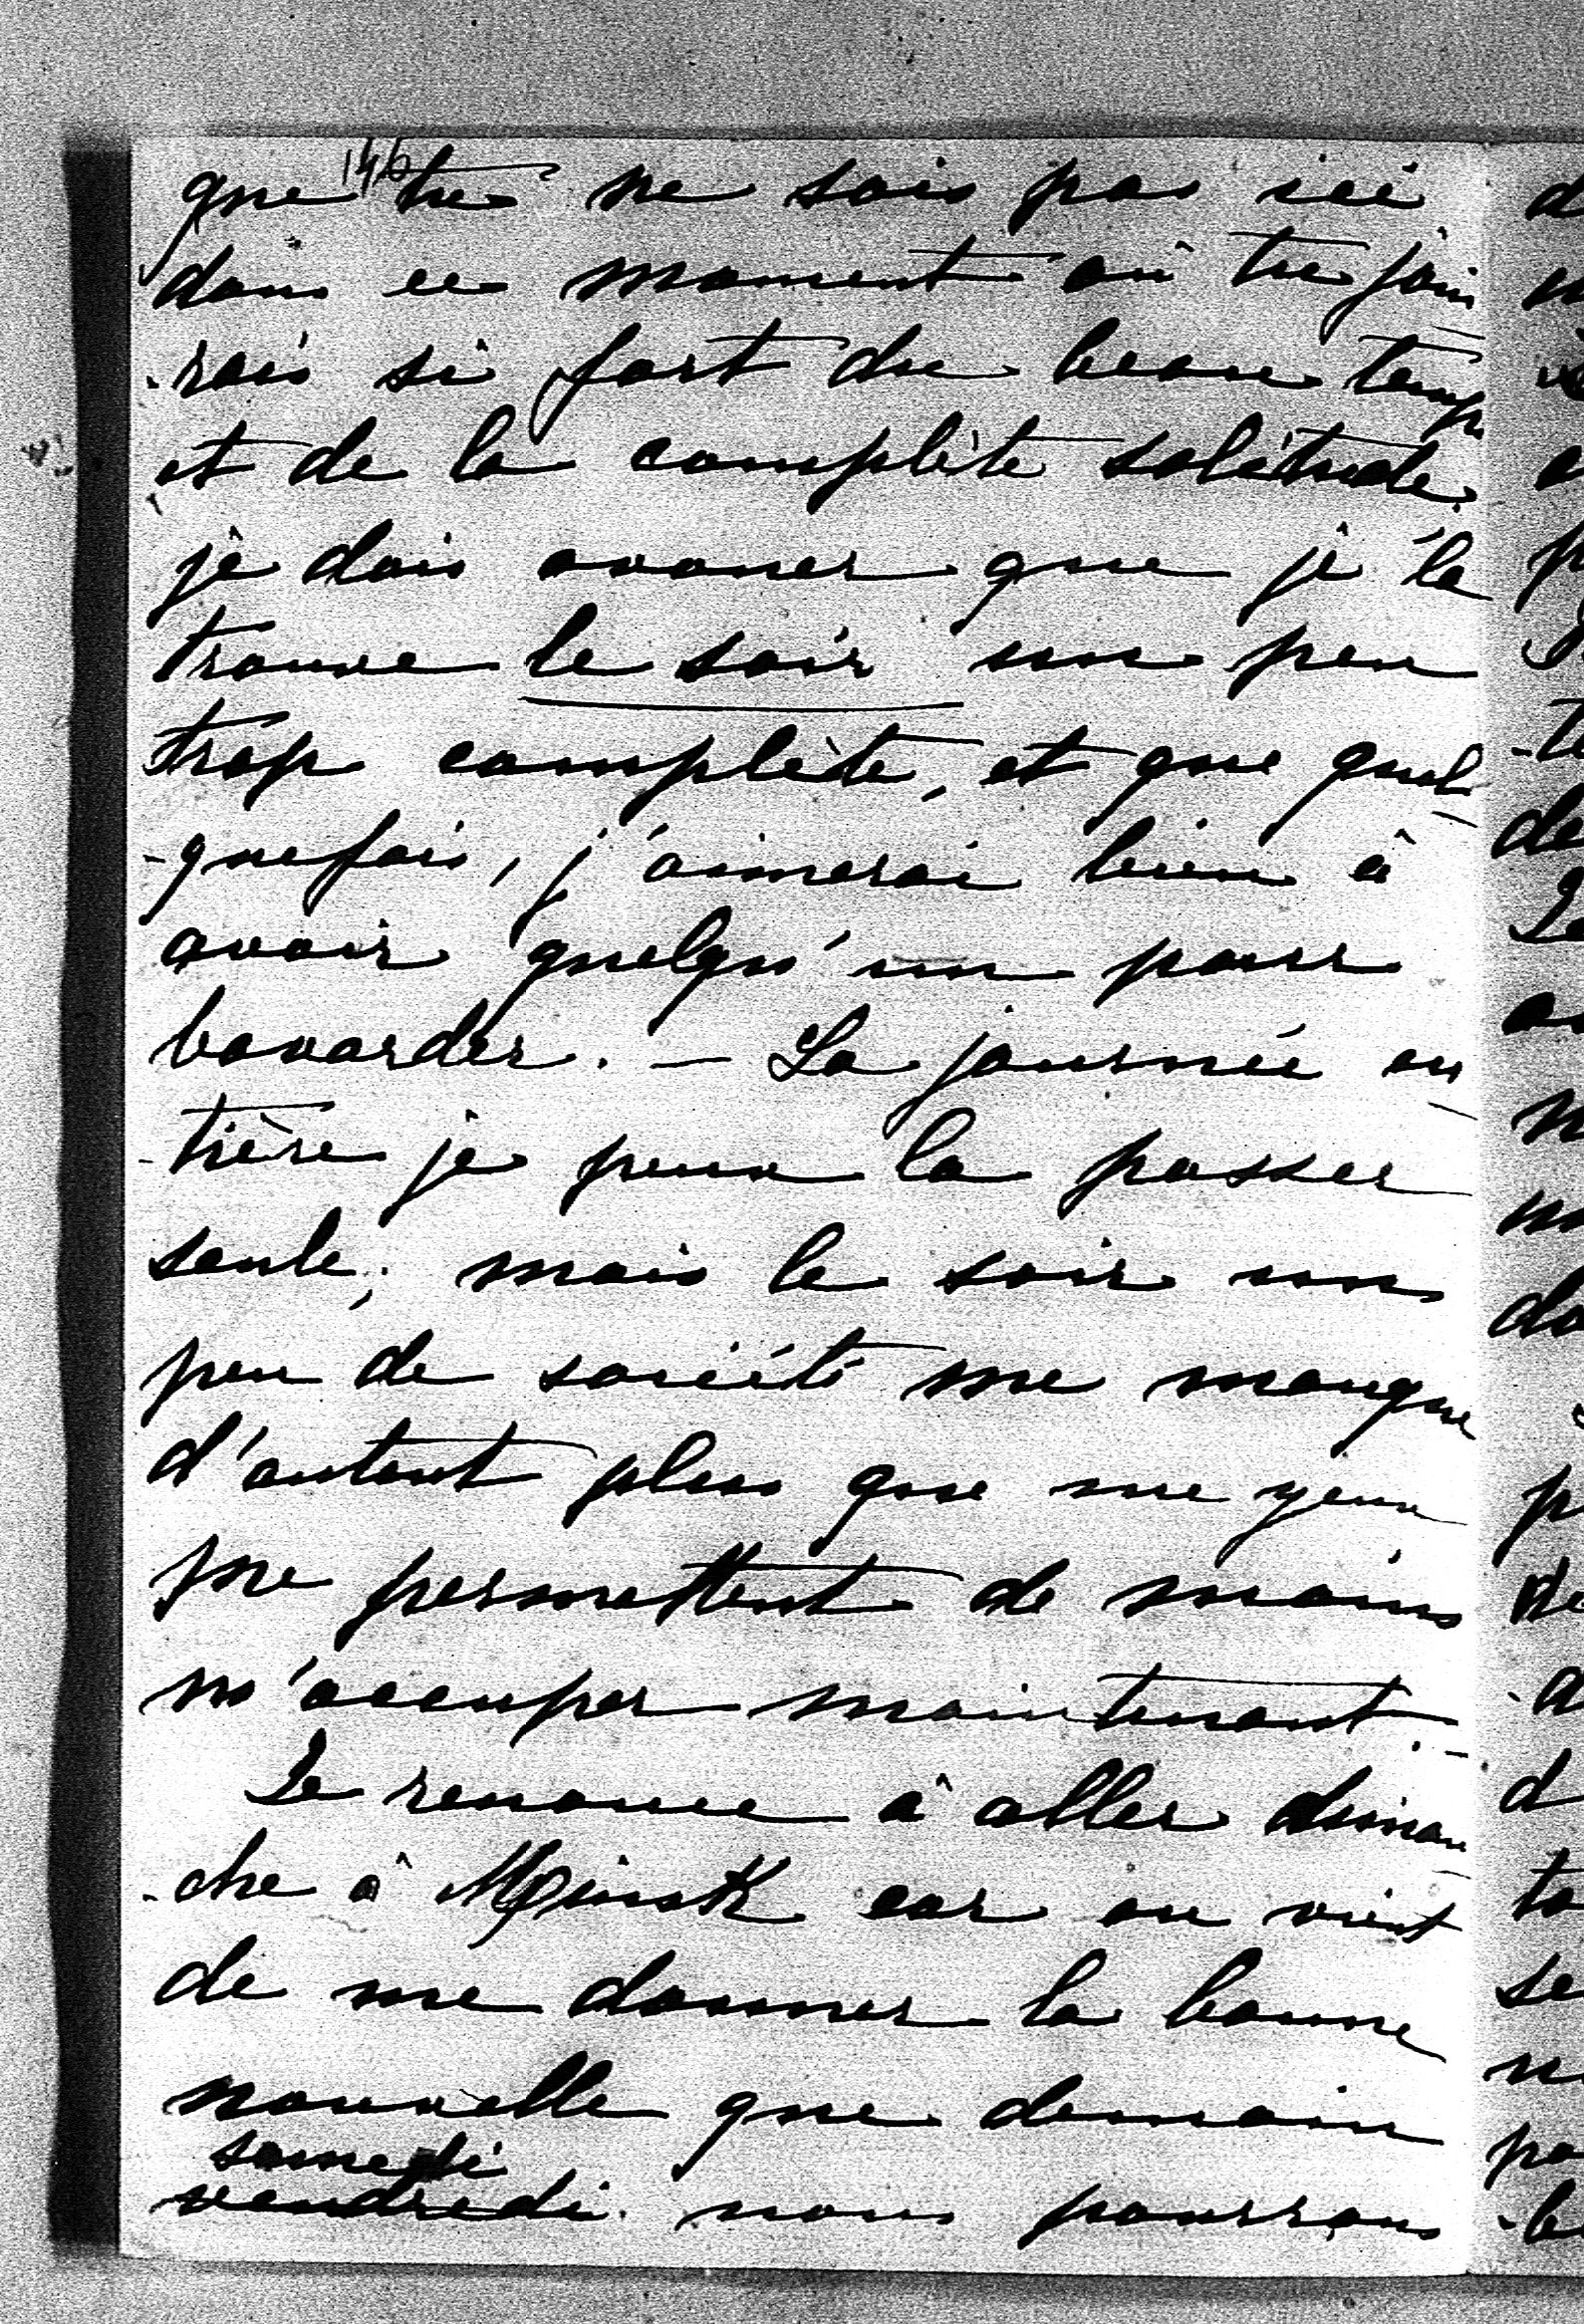 146
que tu ne sois pas ici
dans ce moment où tu joui-
-rais si fort du beau temps
et de la complète solitude.
je dois avouer que je la
trouve le soir un peu
trop complète, et que quel-
-quefois, j'aimerai bien à
avoir quelqu'un pour
bavarder. — La journée en-
-tière je peux la passer
seule; mais le soir un
peu de société me manque
d'autant plus que me yeux
me permettent de moins
m'occuper maintenant. -
Je renonce à aller diman-
-che à Minsk car on vient
de me donner la bonne
nouvelle que demain
samedi
vendredi nous pourrons